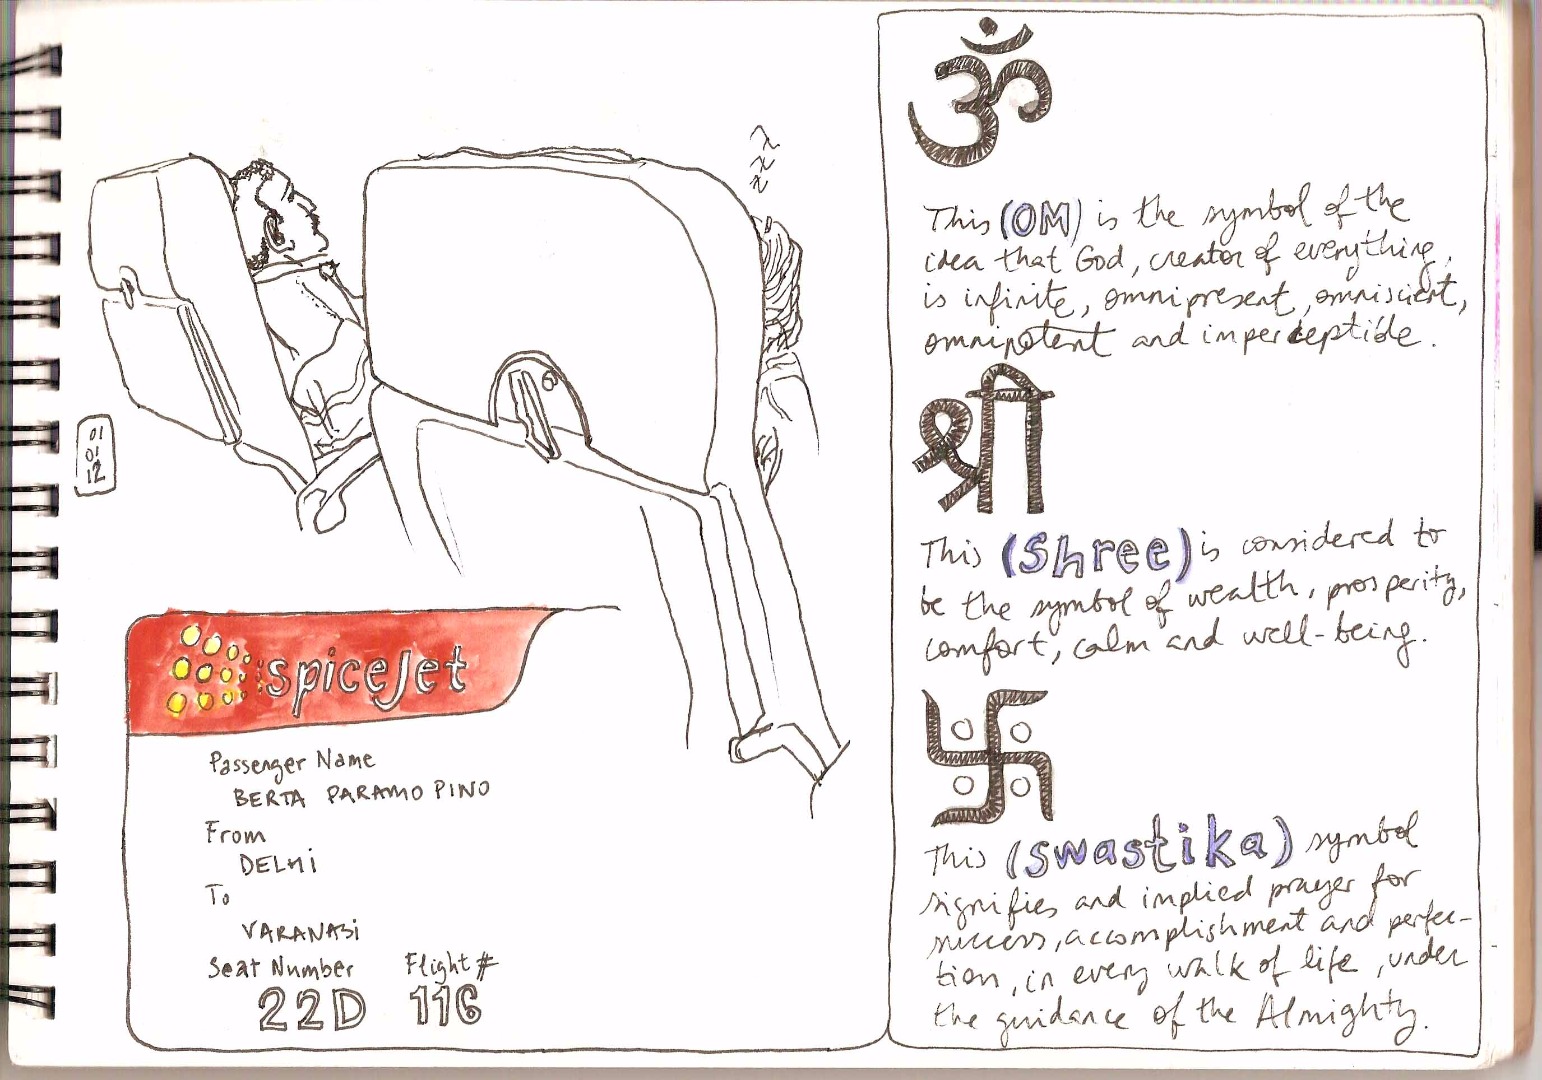 zzz
01
01
12
spiceJet
Passenger Name
BERTA PARAMO PINO
From
DELHI
To
VARANASI
Seat Number Flight #
22D 116
ॐ
This (OM) is the symbol of the
idea that God, creator of everything,
is infinite, omnipresent, omniscient,
omnipotent and imperceptible.
श्री
This (Shree) is considered to
be the symbol of wealth, prosperity,
comfort, calm and well-being.
卐
This (swastika) symbol
signifies and implied prayer for
success, accomplishment and perfec-
tion, in every walk of life, under
the guidance of the Almighty.